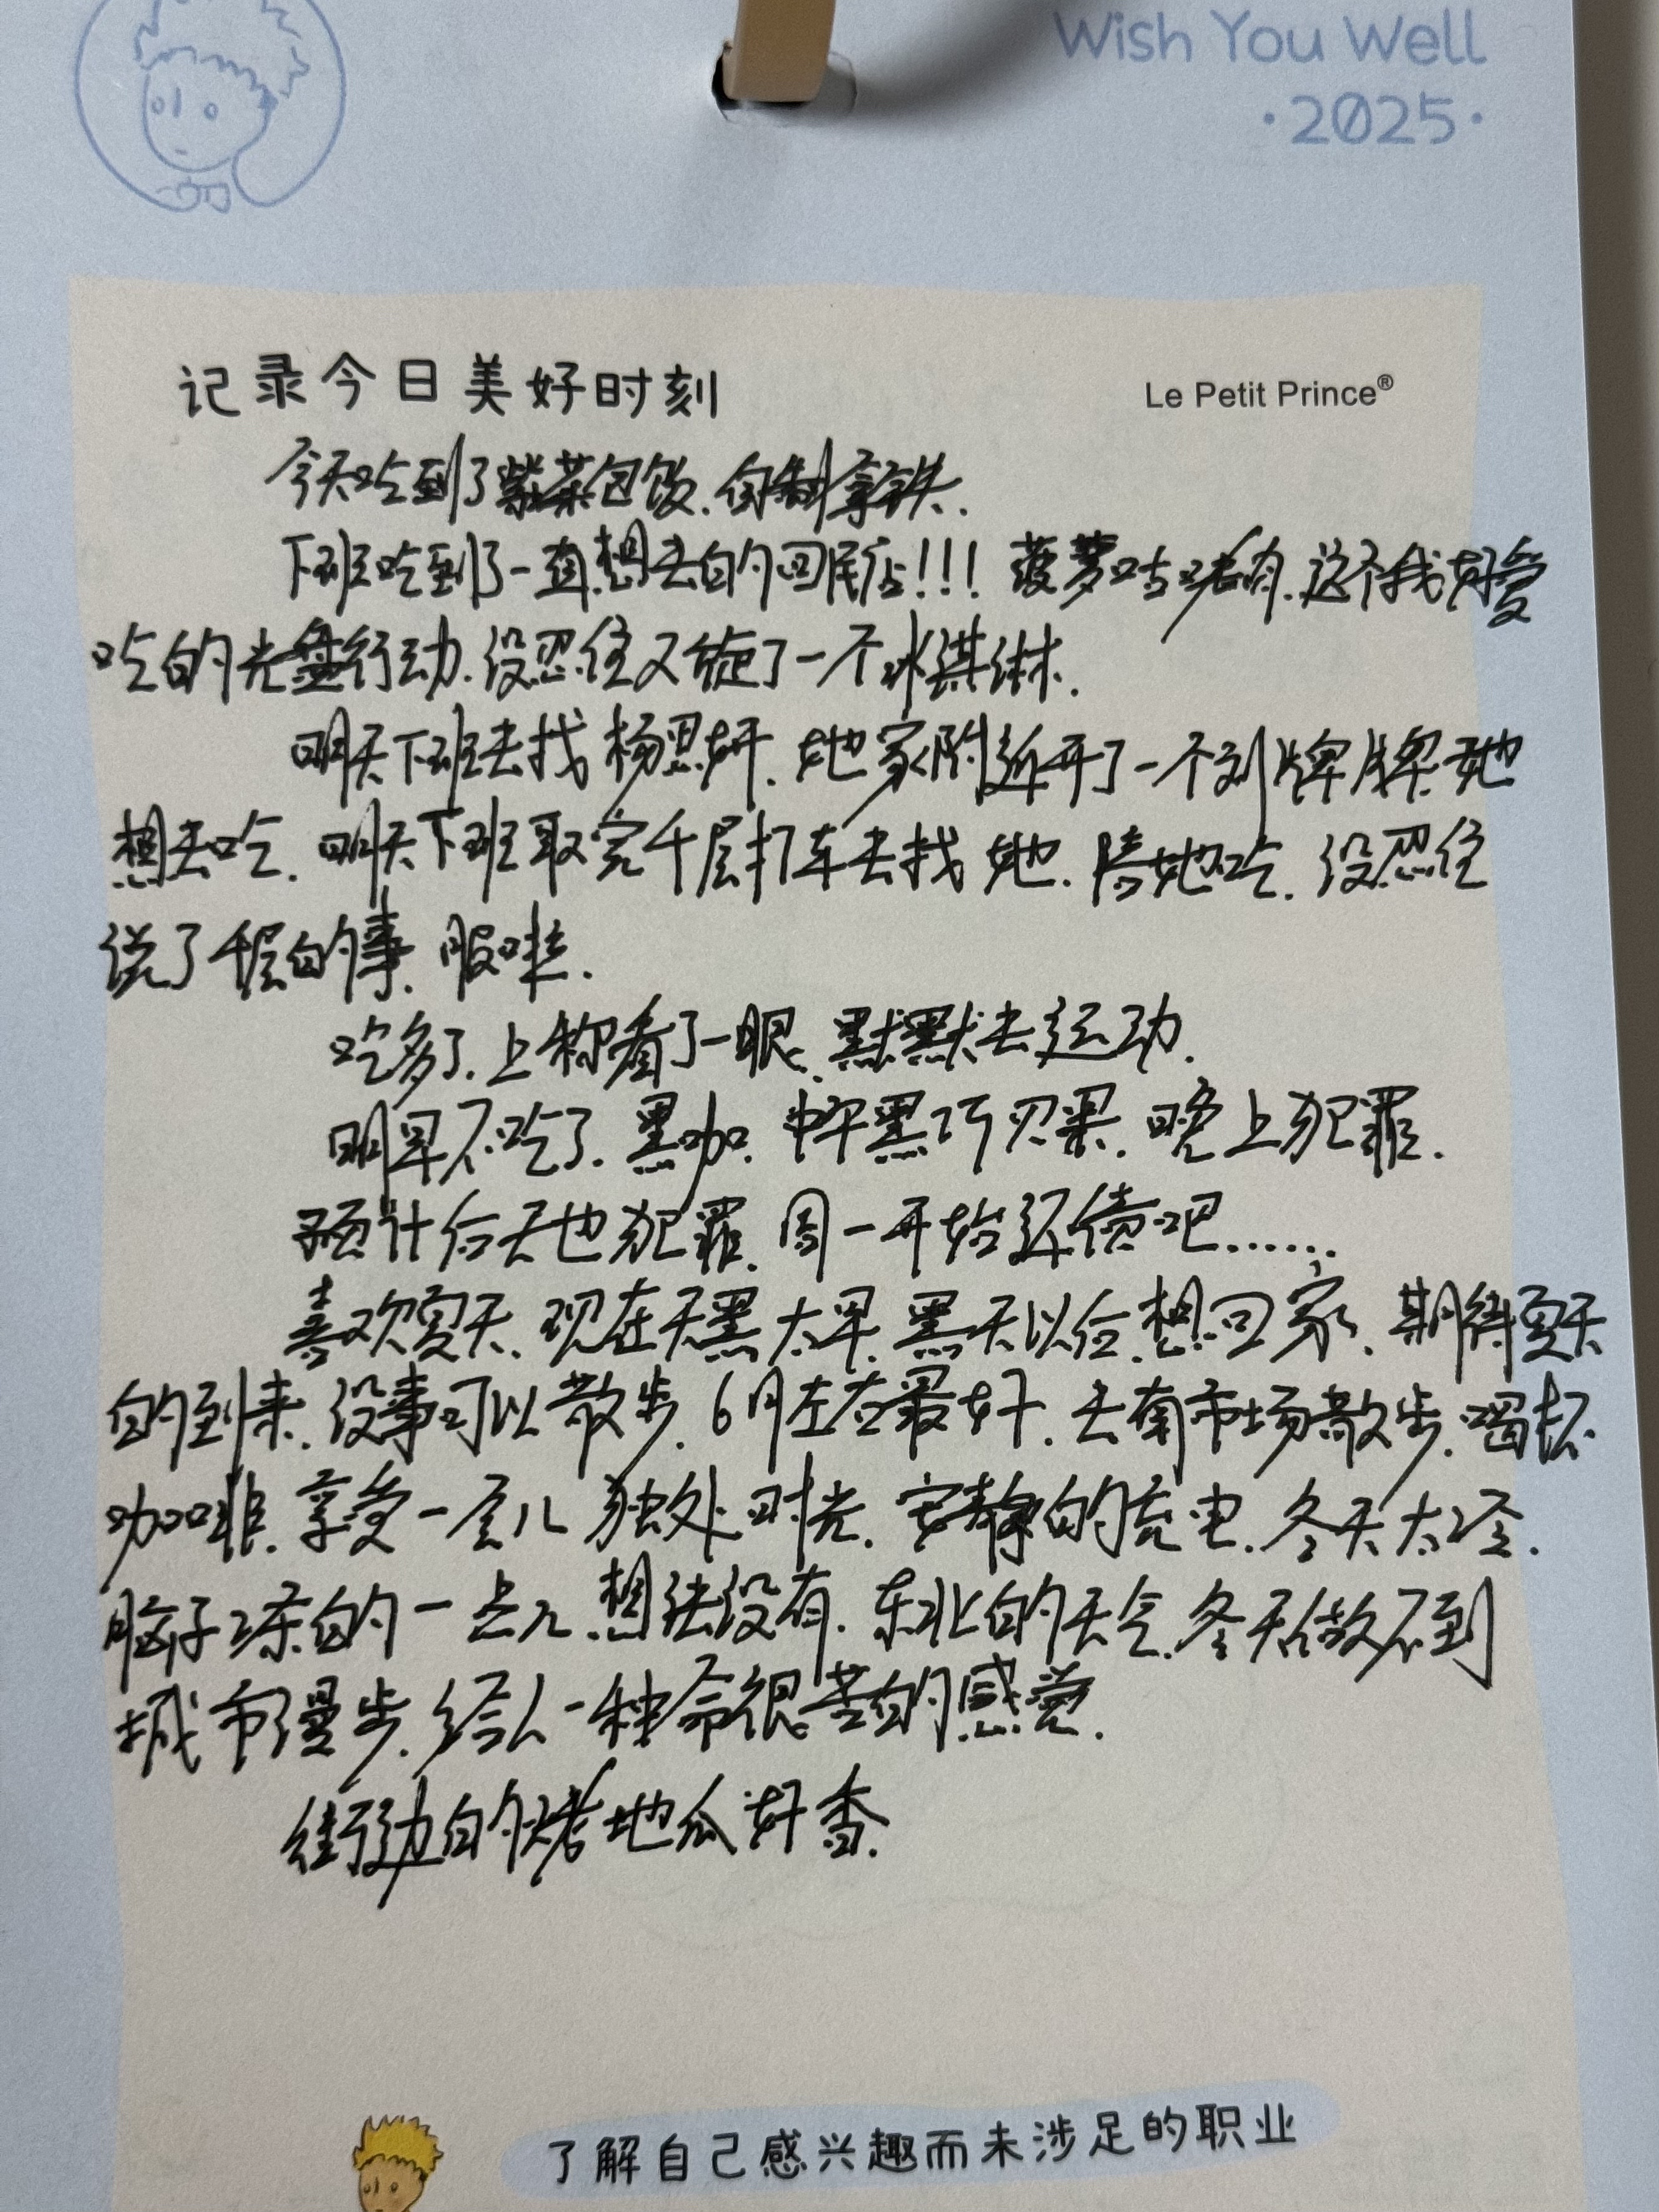 Wish You Well
·2025·
记录今日美好时刻
Le Petit Prince®
今天吃到了紫菜包饭.自制拿铁.
下班吃到了一直想去的回民店!!! 菠萝咕咾肉.这个我好爱
吃的光盘行动.没忍住又炫了一个冰淇淋.
明天下班去找杨思妍.她家附近开了一个刘牌牌.她
想去吃.明天下班取完千层打车去找她.陪她吃.没忍住
说了千层的事.服啦.
吃多了.上称看了一眼.默默去运动.
明早不吃了.黑咖.中午黑巧贝果.晚上犯罪.
预计后天也犯罪.周一开始还债吧......
喜欢夏天.现在天黑太早.黑天以后想回家.期待夏天
的到来.没事可以散步.6月左右最好.去南市场散步.喝杯
咖啡.享受一会儿独处时光.安静的充电.冬天太冷.
脑子冻的一点儿想法没有.东北的天气.冬天做不到
城市漫步.给人一种命很苦的感觉.
街边的烤地瓜好香.
了解自己感兴趣而未涉足的职业